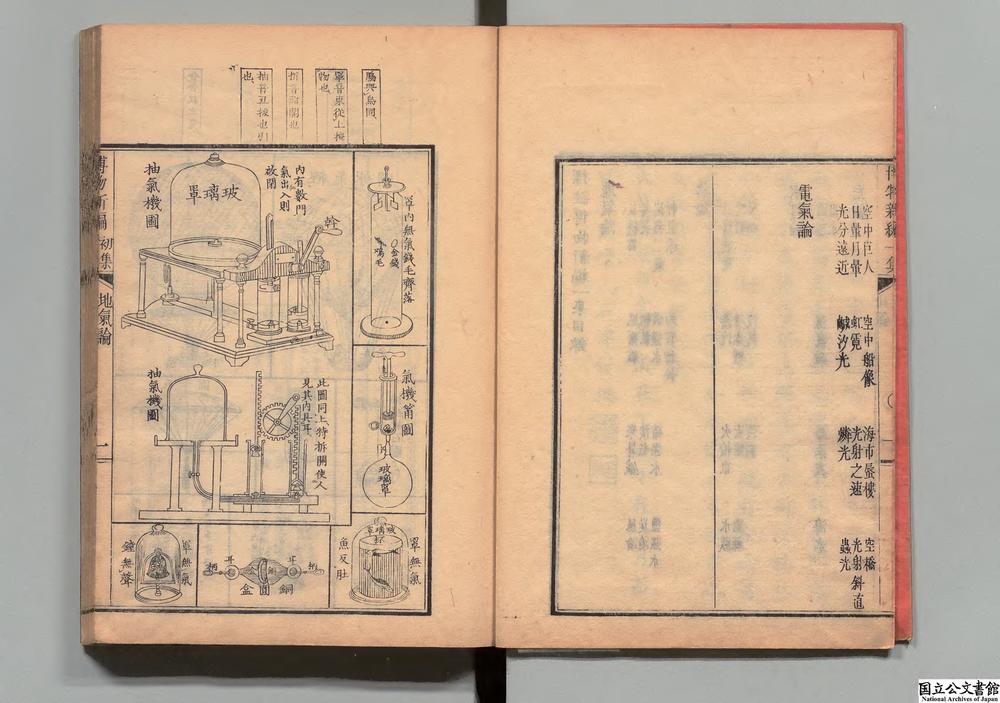 空中巨人
空中船像
海市蜃樓
空橋
日暈月暈
虹霓
光射之速
光射斜直
光分遠近
鹹汐光
燐光
蟲光
電氣論
鳫與鳥同
物也
抽音丑拔也引
也
罩內無氣錢毛齊落
金錢
鷄毛
內有數門
氣出入則
放閉
幹
玻璃罩
抽氣機圖
氣機筩圖
玻璃罩
此圖同上特拆開使人
見其內具耳
抽氣機圖
罩無氣
玻璃罩
杯
魚反肚
耳
柄
耳
柄
銅圓盒
罩無氣
鐘無聲
博物新編 初集
地氣論
一
国立公文書館
National Archives of Japan